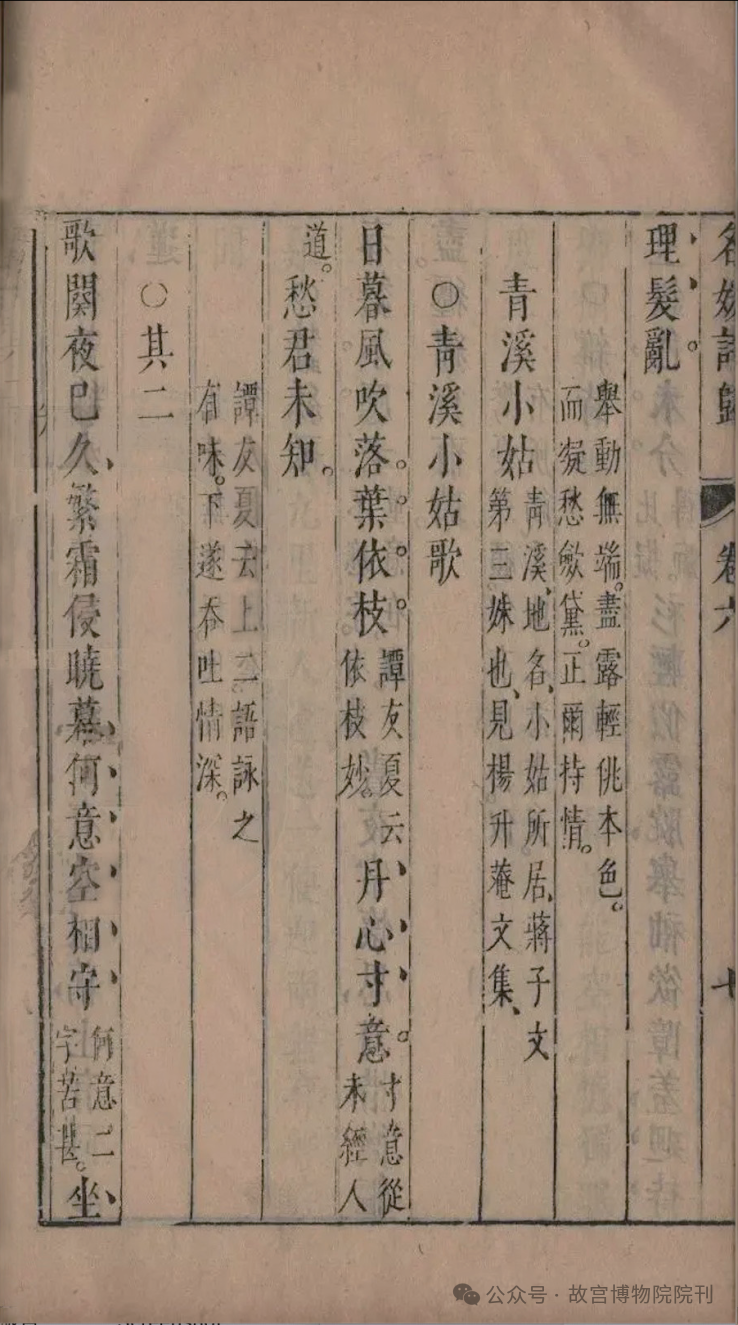 名媛詩歸 卷六 七
理髮亂。舉動無端。盡露輕佻本色。
而凝愁斂黛。正爾持情。
青溪小姑 青溪、地名、小姑所居、蔣子文
第三妹也、見楊升菴文集、
○青溪小姑歌
日暮風吹落。葉。依。枝。譚友夏云
依枝妙。
丹心寸意。寸意從
未經人
道。愁君未知。
譚友夏云上二語詠之
有味。下遂吞吐情深。
○其二
歌闋夜巳久繁霜侵曉幕何意空相守 何意二
字苦甚。
坐
公众号·故宫博物院院刊